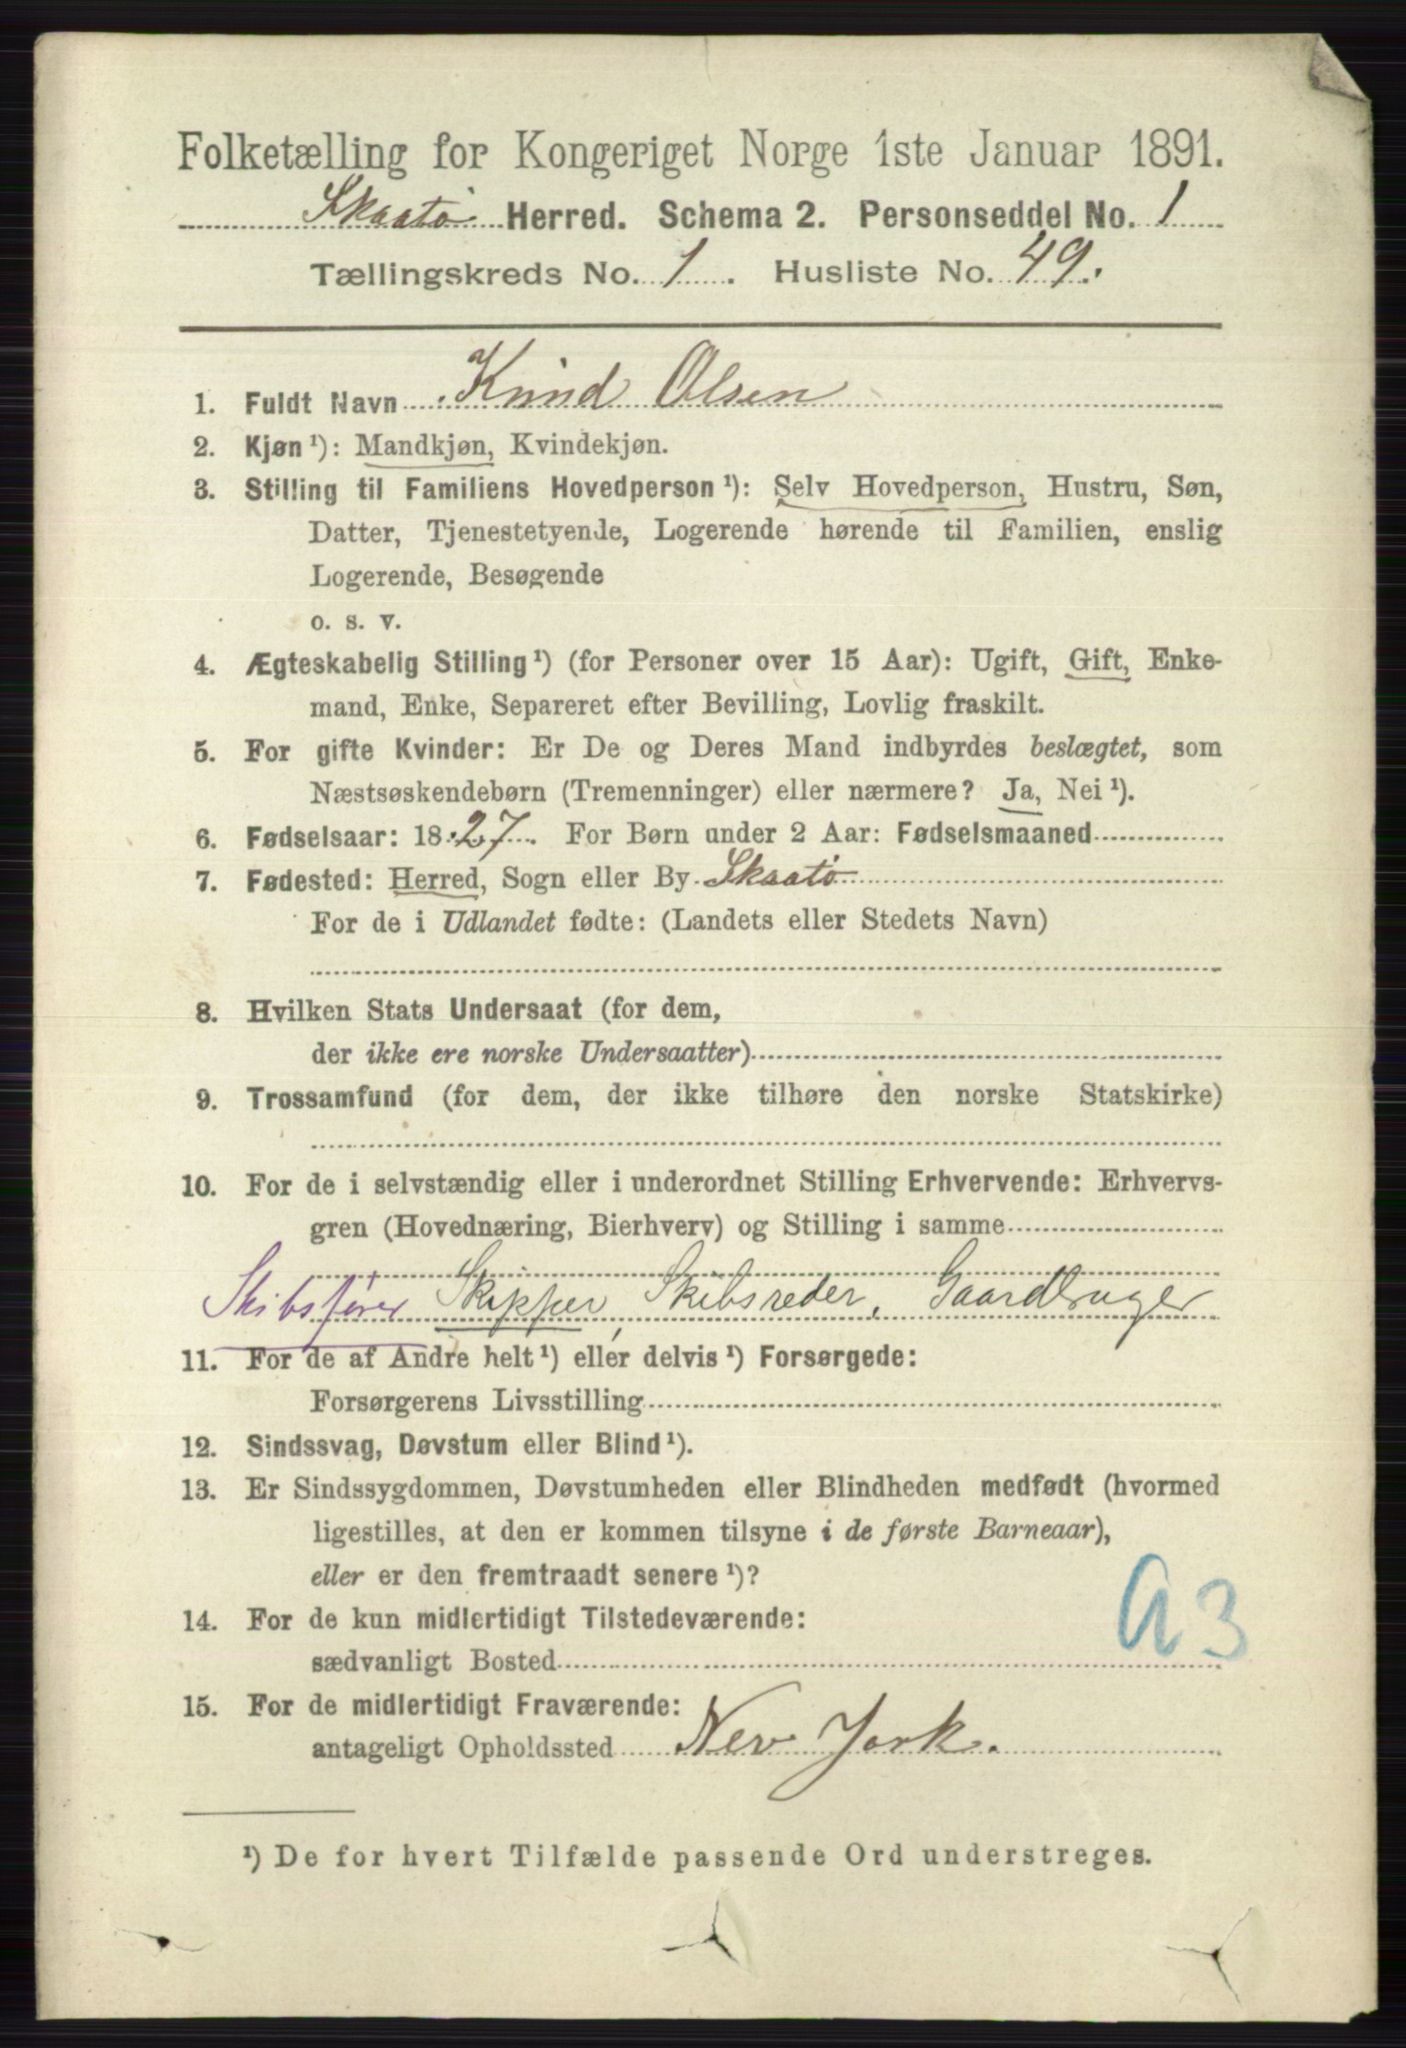 Folketælling for Kongeriget Norge 1ste Januar 1891.
Skaatö Herred. Schema 2. Personseddel No. 1
Tællingskreds No. 1. Husliste No. 49.
1. Fuldt Navn Knud Olsen
2. Kjøn¹): Mandkjøn, Kvindekjøn.
3. Stilling til Familiens Hovedperson¹): Selv Hovedperson, Hustru, Søn,
Datter, Tjenestetyende, Logerende hørende til Familien, enslig
Logerende, Besøgende
o. s. v.
4. Ægteskabelig Stilling¹) (for Personer over 15 Aar): Ugift, Gift, Enke-
mand, Enke, Separeret efter Bevilling, Lovlig fraskilt.
5. For gifte Kvinder: Er De og Deres Mand indbyrdes beslægtet, som
Næstsøskendebørn (Tremenninger) eller nærmere? Ja, Nei¹).
6. Fødselsaar: 1827. For Børn under 2 Aar: Fødselsmaaned
7. Fødested: Herred, Sogn eller By Skaatö
For de i Udlandet fødte: (Landets eller Stedets Navn)
8. Hvilken Stats Undersaat (for dem,
der ikke ere norske Undersaatter)
9. Trossamfund (for dem, der ikke tilhøre den norske Statskirke)
10. For de i selvstændig eller i underordnet Stilling Erhvervende: Erhvervs-
gren (Hovednæring, Bierhverv) og Stilling i samme
Skibsfører Skipper, Skibsreder, Gaardbruger
11. For de af Andre helt¹) eller delvis¹) Forsørgede:
Forsørgerens Livsstilling
12. Sindssvag, Døvstum eller Blind¹).
13. Er Sindssygdommen, Døvstumheden eller Blindheden medfødt (hvormed
ligestilles, at den er kommen tilsyne i de første Barneaar),
eller er den fremtraadt senere¹)?
14. For de kun midlertidigt Tilstedeværende:
sædvanligt Bosted
a3
15. For de midlertidigt Fraværende:
antageligt Opholdssted New York.
¹) De for hvert Tilfælde passende Ord understreges.